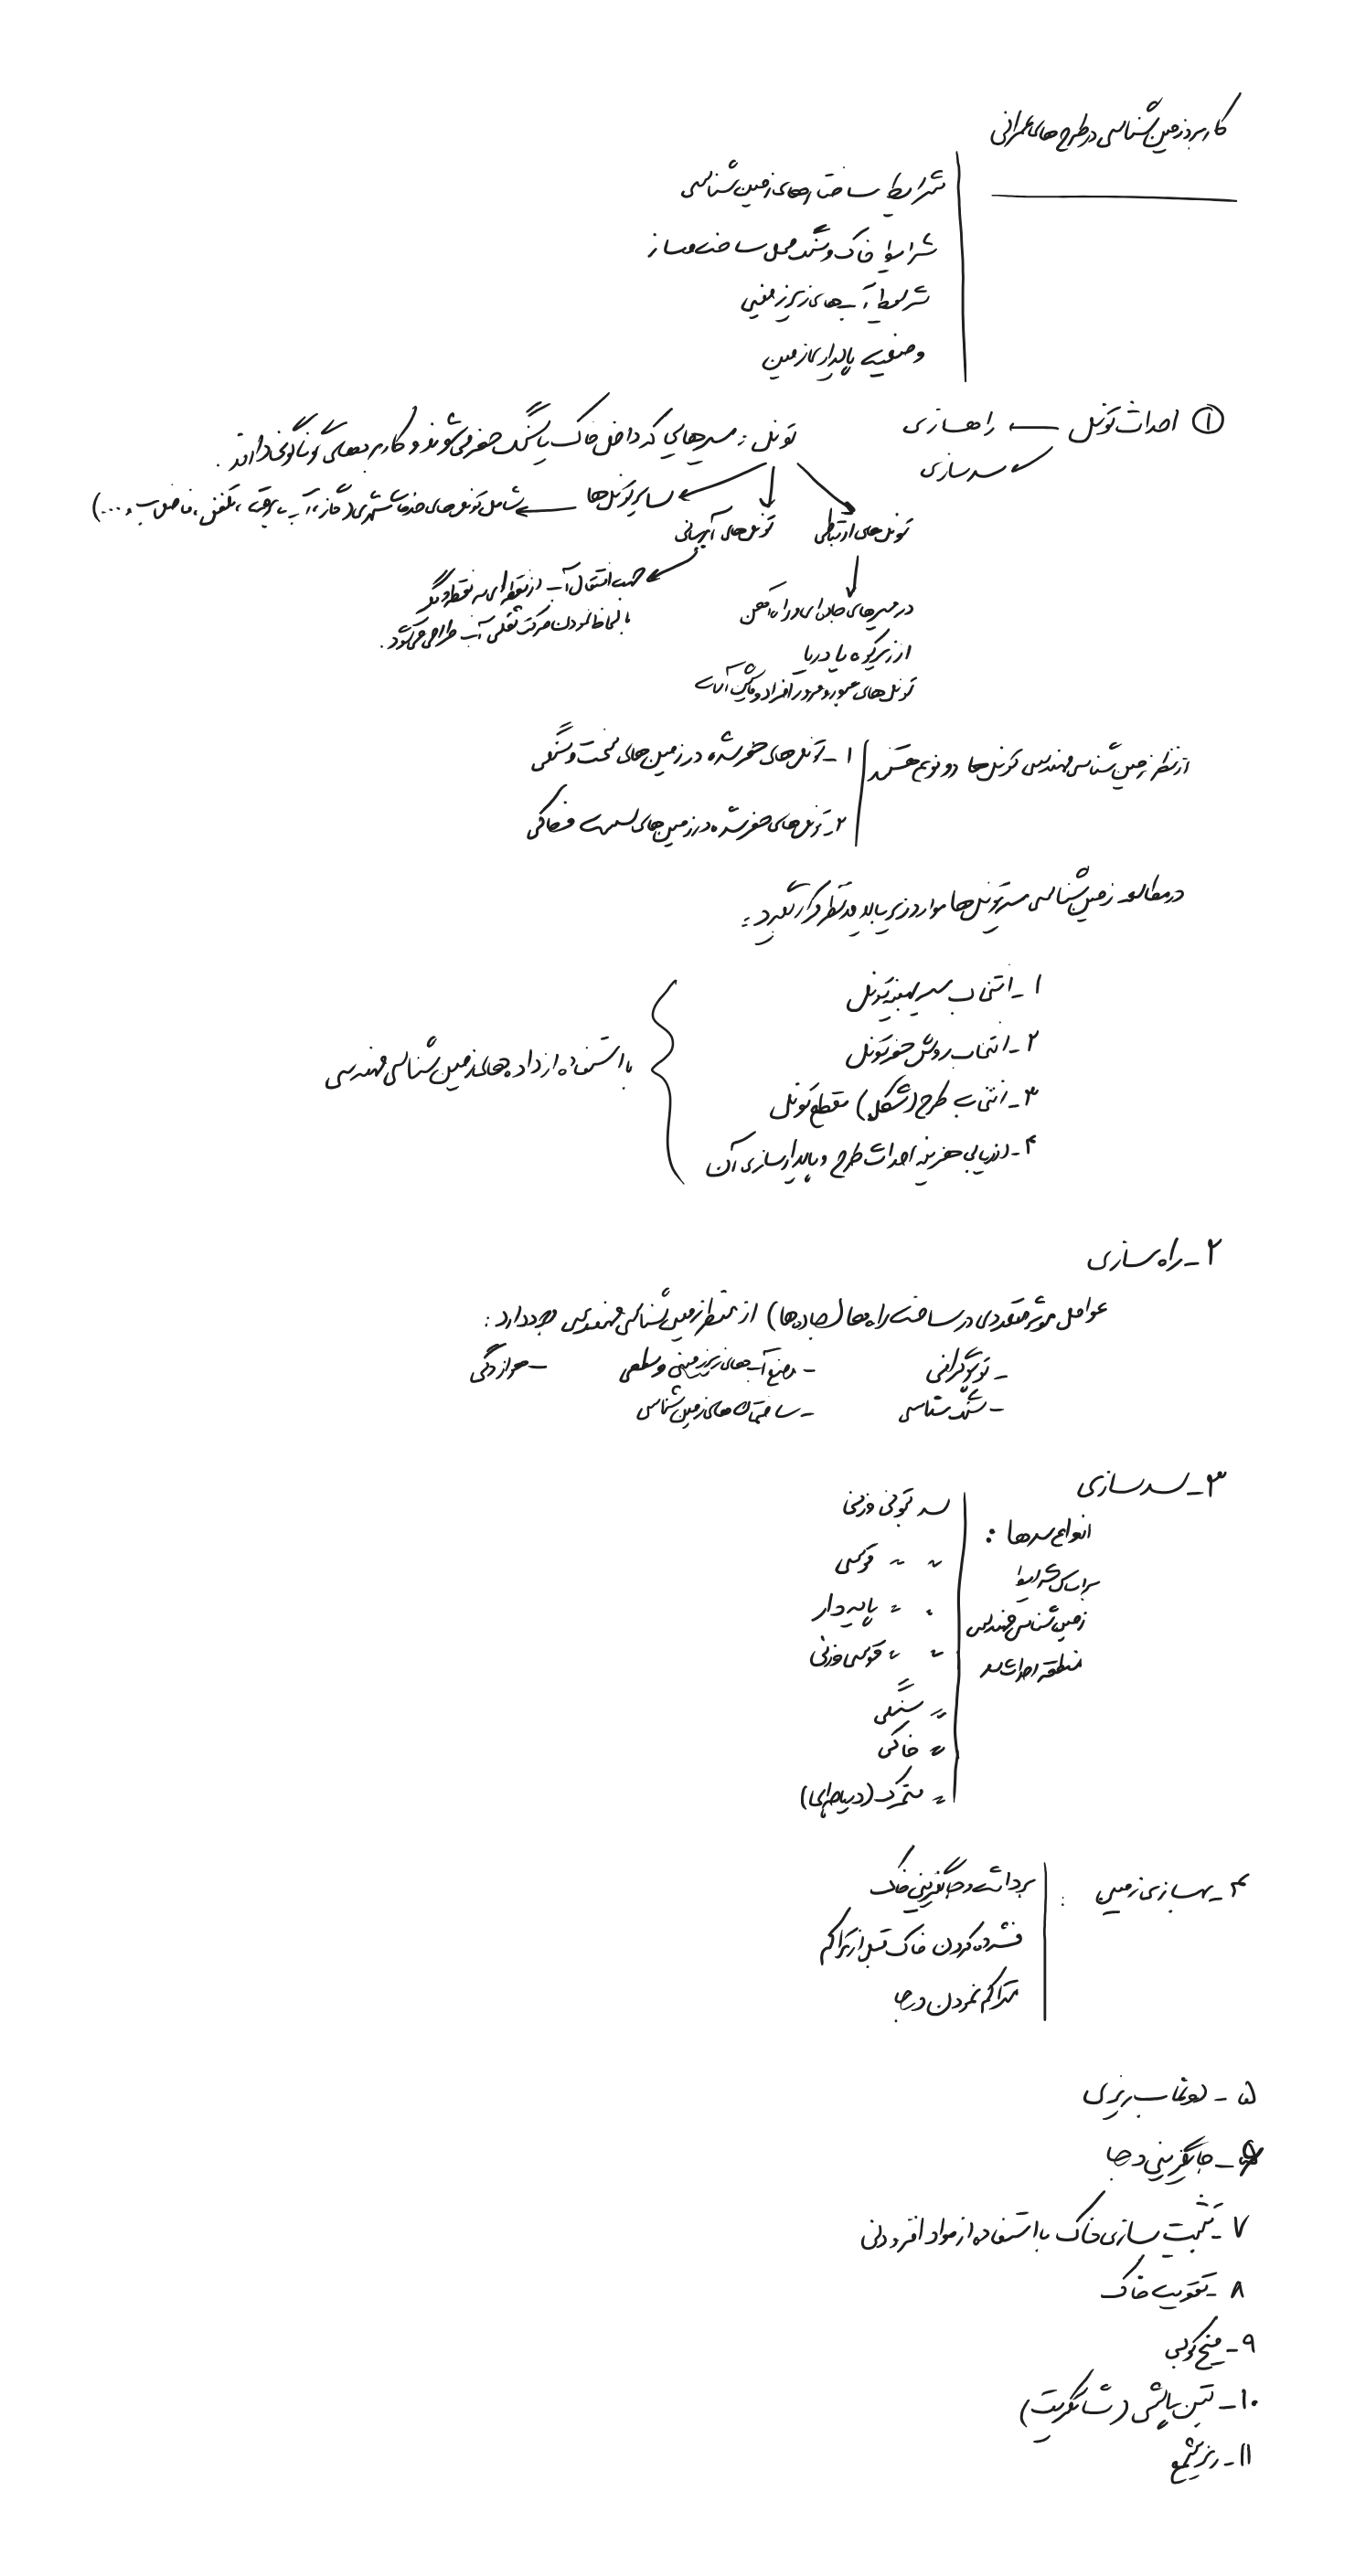 کاربرد زمین شناسی در طرح های عمرانی
شرایط ساختارهای زمین شناسی
شرایط خاک و سنگ محل ساخت و ساز
شرایط آب های زیرزمینی
وضعیت پایداری زمین
① احداث تونل ← راهسازی
سدسازی
تونل : مسیرهایی که داخل خاک یا سنگ حفر می شوند و کاربردهای گوناگونی دارند .
تونل های ارتباطی
تونل های آبرسانی
سایر تونل ها ← شامل تونل های خدمات شهری (گاز، آب، برق، تلفن، فاضلاب و ...)
در مسیرهای جاده ای و راه آهن
از زیر کوه یا دریا
تونل های عبور و مرور افراد و ماشین آلات
جهت انتقال آب از نقطه ای به نقطه دیگر
با لحاظ نمودن حرکت ثقلی آب طراحی می شود .
از نظر زمین شناسی مهندسی تونل ها دو نوع هستند
۱ - تونل های حفر شده در زمین های سخت و سنگی
۲ - تونل های حفر شده در زمین های سست و خاکی
در مطالعه زمین شناسی مسیر تونل ها موارد زیر باید مدنظر قرار گیرد :
۱ - انتخاب مسیر بهینه تونل
۲ - انتخاب روش حفر تونل
۳ - انتخاب طرح (شکل) مقطع تونل
۴ - ارزیابی هزینه احداث طرح و پایدارسازی آن
با استفاده از داده های زمین شناسی مهندسی
۲ - راه سازی
عوامل موثر متعددی در ساخت راه ها (جاده ها) از منظر زمین شناسی مهندسی وجود دارد :
- توپوگرافی - وضع آب های زیرزمینی و سطحی - هوازدگی
- سنگ شناسی - ساختمان های زمین شناسی
۳ - سدسازی
انواع سدها :
براساس شرایط
زمین شناسی مهندسی
منطقه احداث سد
سد بتونی وزنی
〃 〃 قوسی
〃 〃 پایه دار
〃 〃 قوسی وزنی
〃 سنگی
〃 خاکی
〃 متحرک (دریاچه ای)
۴ - بهسازی زمین :
برداشت و جایگزینی خاک
فشرده کردن خاک قبل از تراکم
متراکم نمودن درجا
۵ - دوغاب ریزی
۶ - جایگزینی درجا
۷ - تثبیت سازی خاک با استفاده از مواد افزودنی
۸ - تقویت خاک
۹ - میخ کوبی
۱۰ - بتن پاشی (شاتکریت)
۱۱ - ریز شمع